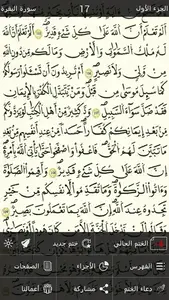 الجزء الأول 17 سورة البقرة
أَلَمْ تَعْلَمْ أَنَّ اللَّهَ عَلَىٰ كُلِّ شَيْءٍ قَدِيرٌ ١٠٦ أَلَمْ تَعْلَمْ أَنَّ اللَّهَ
لَهُ مُلْكُ السَّمَٰوَٰتِ وَالْأَرْضِ وَمَا لَكُم مِّن دُونِ اللَّهِ
مِن وَلِيٍّ وَلَا نَصِيرٍ ١٠٧ أَمْ تُرِيدُونَ أَن تَسْـَٔلُوا رَسُولَكُمْ
كَمَا سُئِلَ مُوسَىٰ مِن قَبْلُ وَمَن يَتَبَدَّلِ الْكُفْرَ بِالْإِيمَٰنِ
فَقَدْ ضَلَّ سَوَاءَ السَّبِيلِ ١٠٨ وَدَّ كَثِيرٌ مِّنْ أَهْلِ الْكِتَٰبِ
لَوْ يَرُدُّونَكُم مِّن بَعْدِ إِيمَٰنِكُمْ كُفَّارًا حَسَدًا مِّنْ عِندِ أَنفُسِهِم
مِّن بَعْدِ مَا تَبَيَّنَ لَهُمُ الْحَقُّ فَاعْفُوا وَاصْفَحُوا حَتَّىٰ يَأْتِيَ اللَّهُ بِأَمْرِهِ
إِنَّ اللَّهَ عَلَىٰ كُلِّ شَيْءٍ قَدِيرٌ ١٠٩ وَأَقِيمُوا الصَّلَوٰةَ
وَءَاتُوا الزَّكَوٰةَ وَمَا تُقَدِّمُوا لِأَنفُسِكُم مِّنْ خَيْرٍ
تَجِدُوهُ عِندَ اللَّهِ إِنَّ اللَّهَ بِمَا تَعْمَلُونَ بَصِيرٌ
الختم الحالي ختم جديد
الفهرس الأجزاء الصفحات
دعاء الختم مشاركة أعمالنا